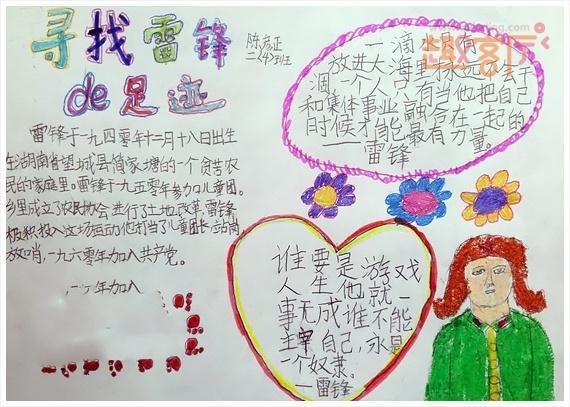 寻找雷锋
de足迹
陈彦正
二(4)班
雷锋于一九四零年十二月十八日出生
在湖南省望城县简家塘的一个贫苦农
民的家庭里。雷锋于九五零年参加儿童团。
乡里成立了农民协会进行了土地改革,雷锋
极积投入这场运动他担当了儿童团长站岗
放哨,一九六零年加入共产党。
年加入
一滴水只有
放进大海里永远不会干
涸一个人只有当他把自己
和集体事业融合在一起的
时候才能最有力量。
——雷锋
谁要是游戏
人生他就一
事无成谁不能
主宰自己,永是
一个奴隶。
—雷锋